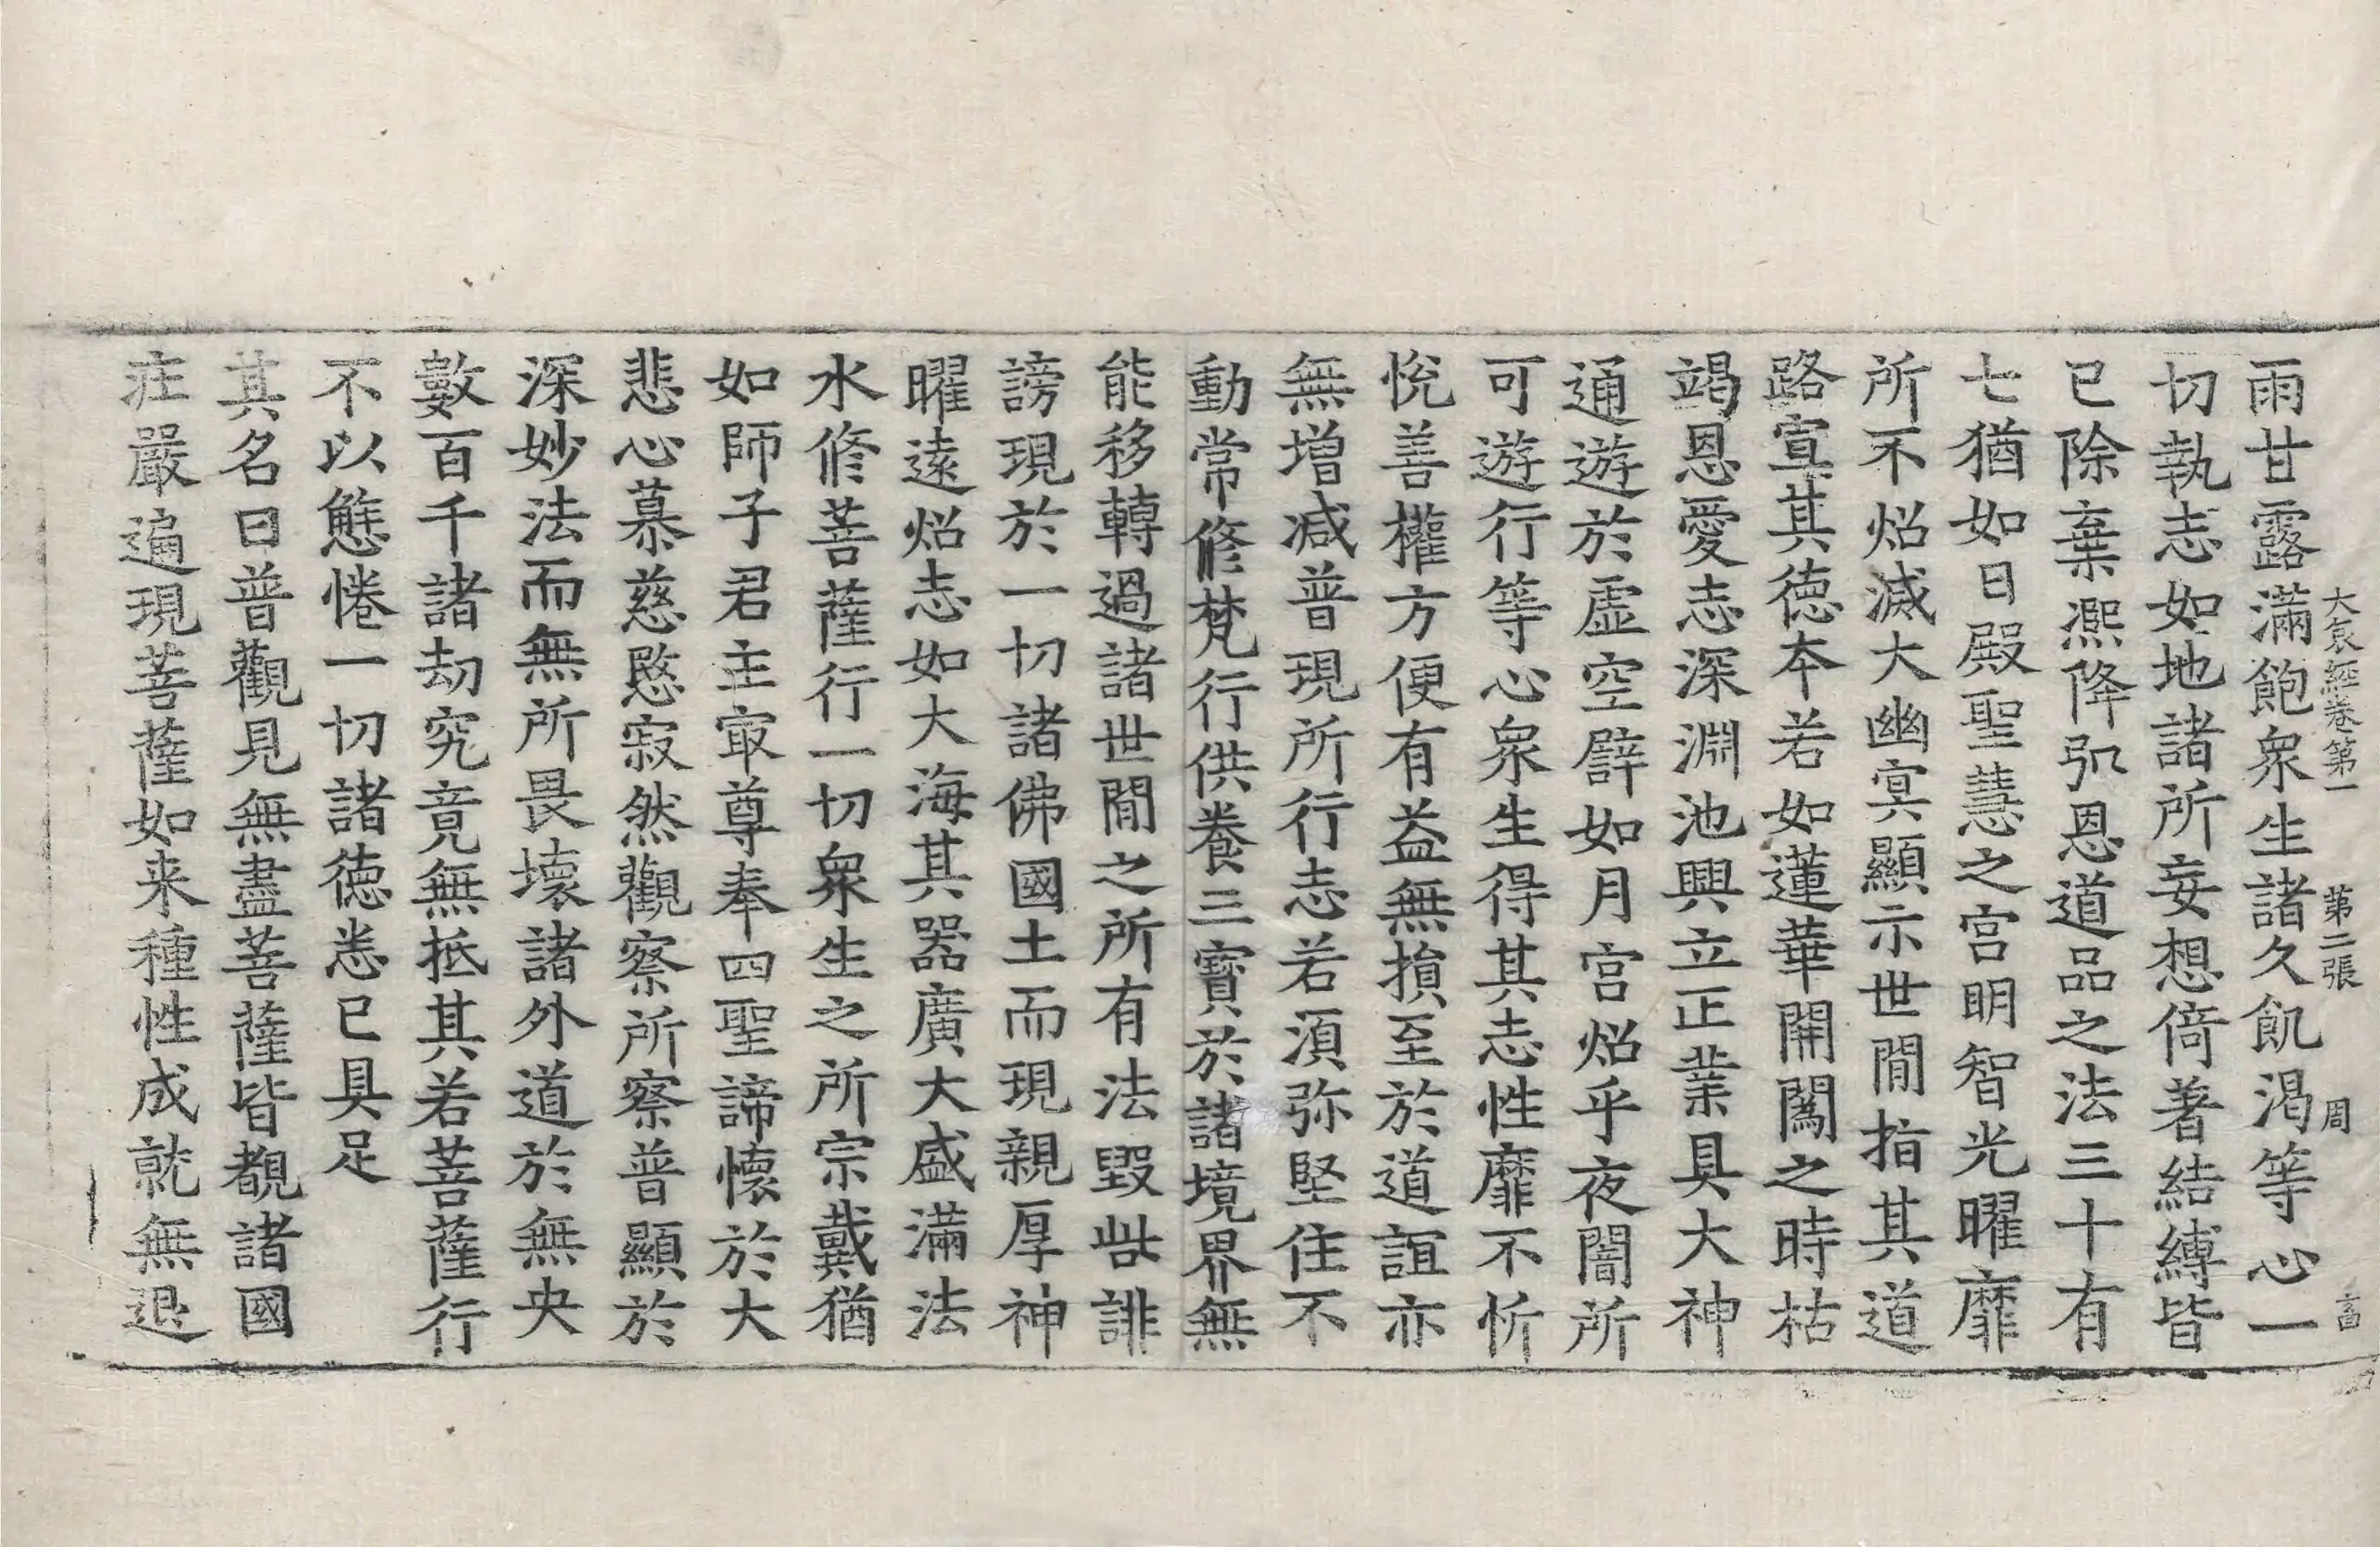 大哀經卷第一　第二張　周
雨甘露滿飽衆生諸久飢渴等心一
切執志如地諸所妄想倚著結縛皆
已除棄凞降肕恩道品之法三十有
七猶如日殿聖慧之宫明智光曜靡
所不炤滅大幽冥顯示世間指其道
路宣其徳本若如蓮華開闔之時枯
竭恩愛志深淵池興立正業具大神
通遊於虛空譬如月宫炤乎夜闇所
可遊行等心衆生得其志性靡不忻
恱善權方便有益無損至於道誼亦
無增减普現所行志若湏弥堅住不
動常修梵行供養三寶於諸境界無
能移轉過諸世間之所有法毀呰誹
謗現於一切諸佛國土而現親厚神
曜遠炤志如大海其器廣大盛滿法
水修菩薩行一切衆生之所宗戴猶
如師子君主㝡尊奉四聖諦懷於大
悲心慕慈愍寂然觀察所察普顯於
深妙法而無所畏壞諸外道於無央
數百千諸劫究竟無扺其若菩薩行
不以態惓一切諸德悉已具足
其名曰普觀見無盡菩薩皆覩諸國
庄嚴遍現菩薩如来種性成就無退